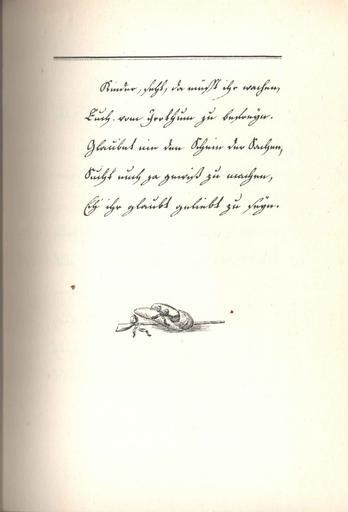 Kinder, seht, da müsst ihr wachen,
Euch vom Irrthum zu befreyn.
Glaubet nie den Schein der Sachen,
Sucht euch ja gewiß zu machen,
Eh ihr glaubt geliebt zu seyn.